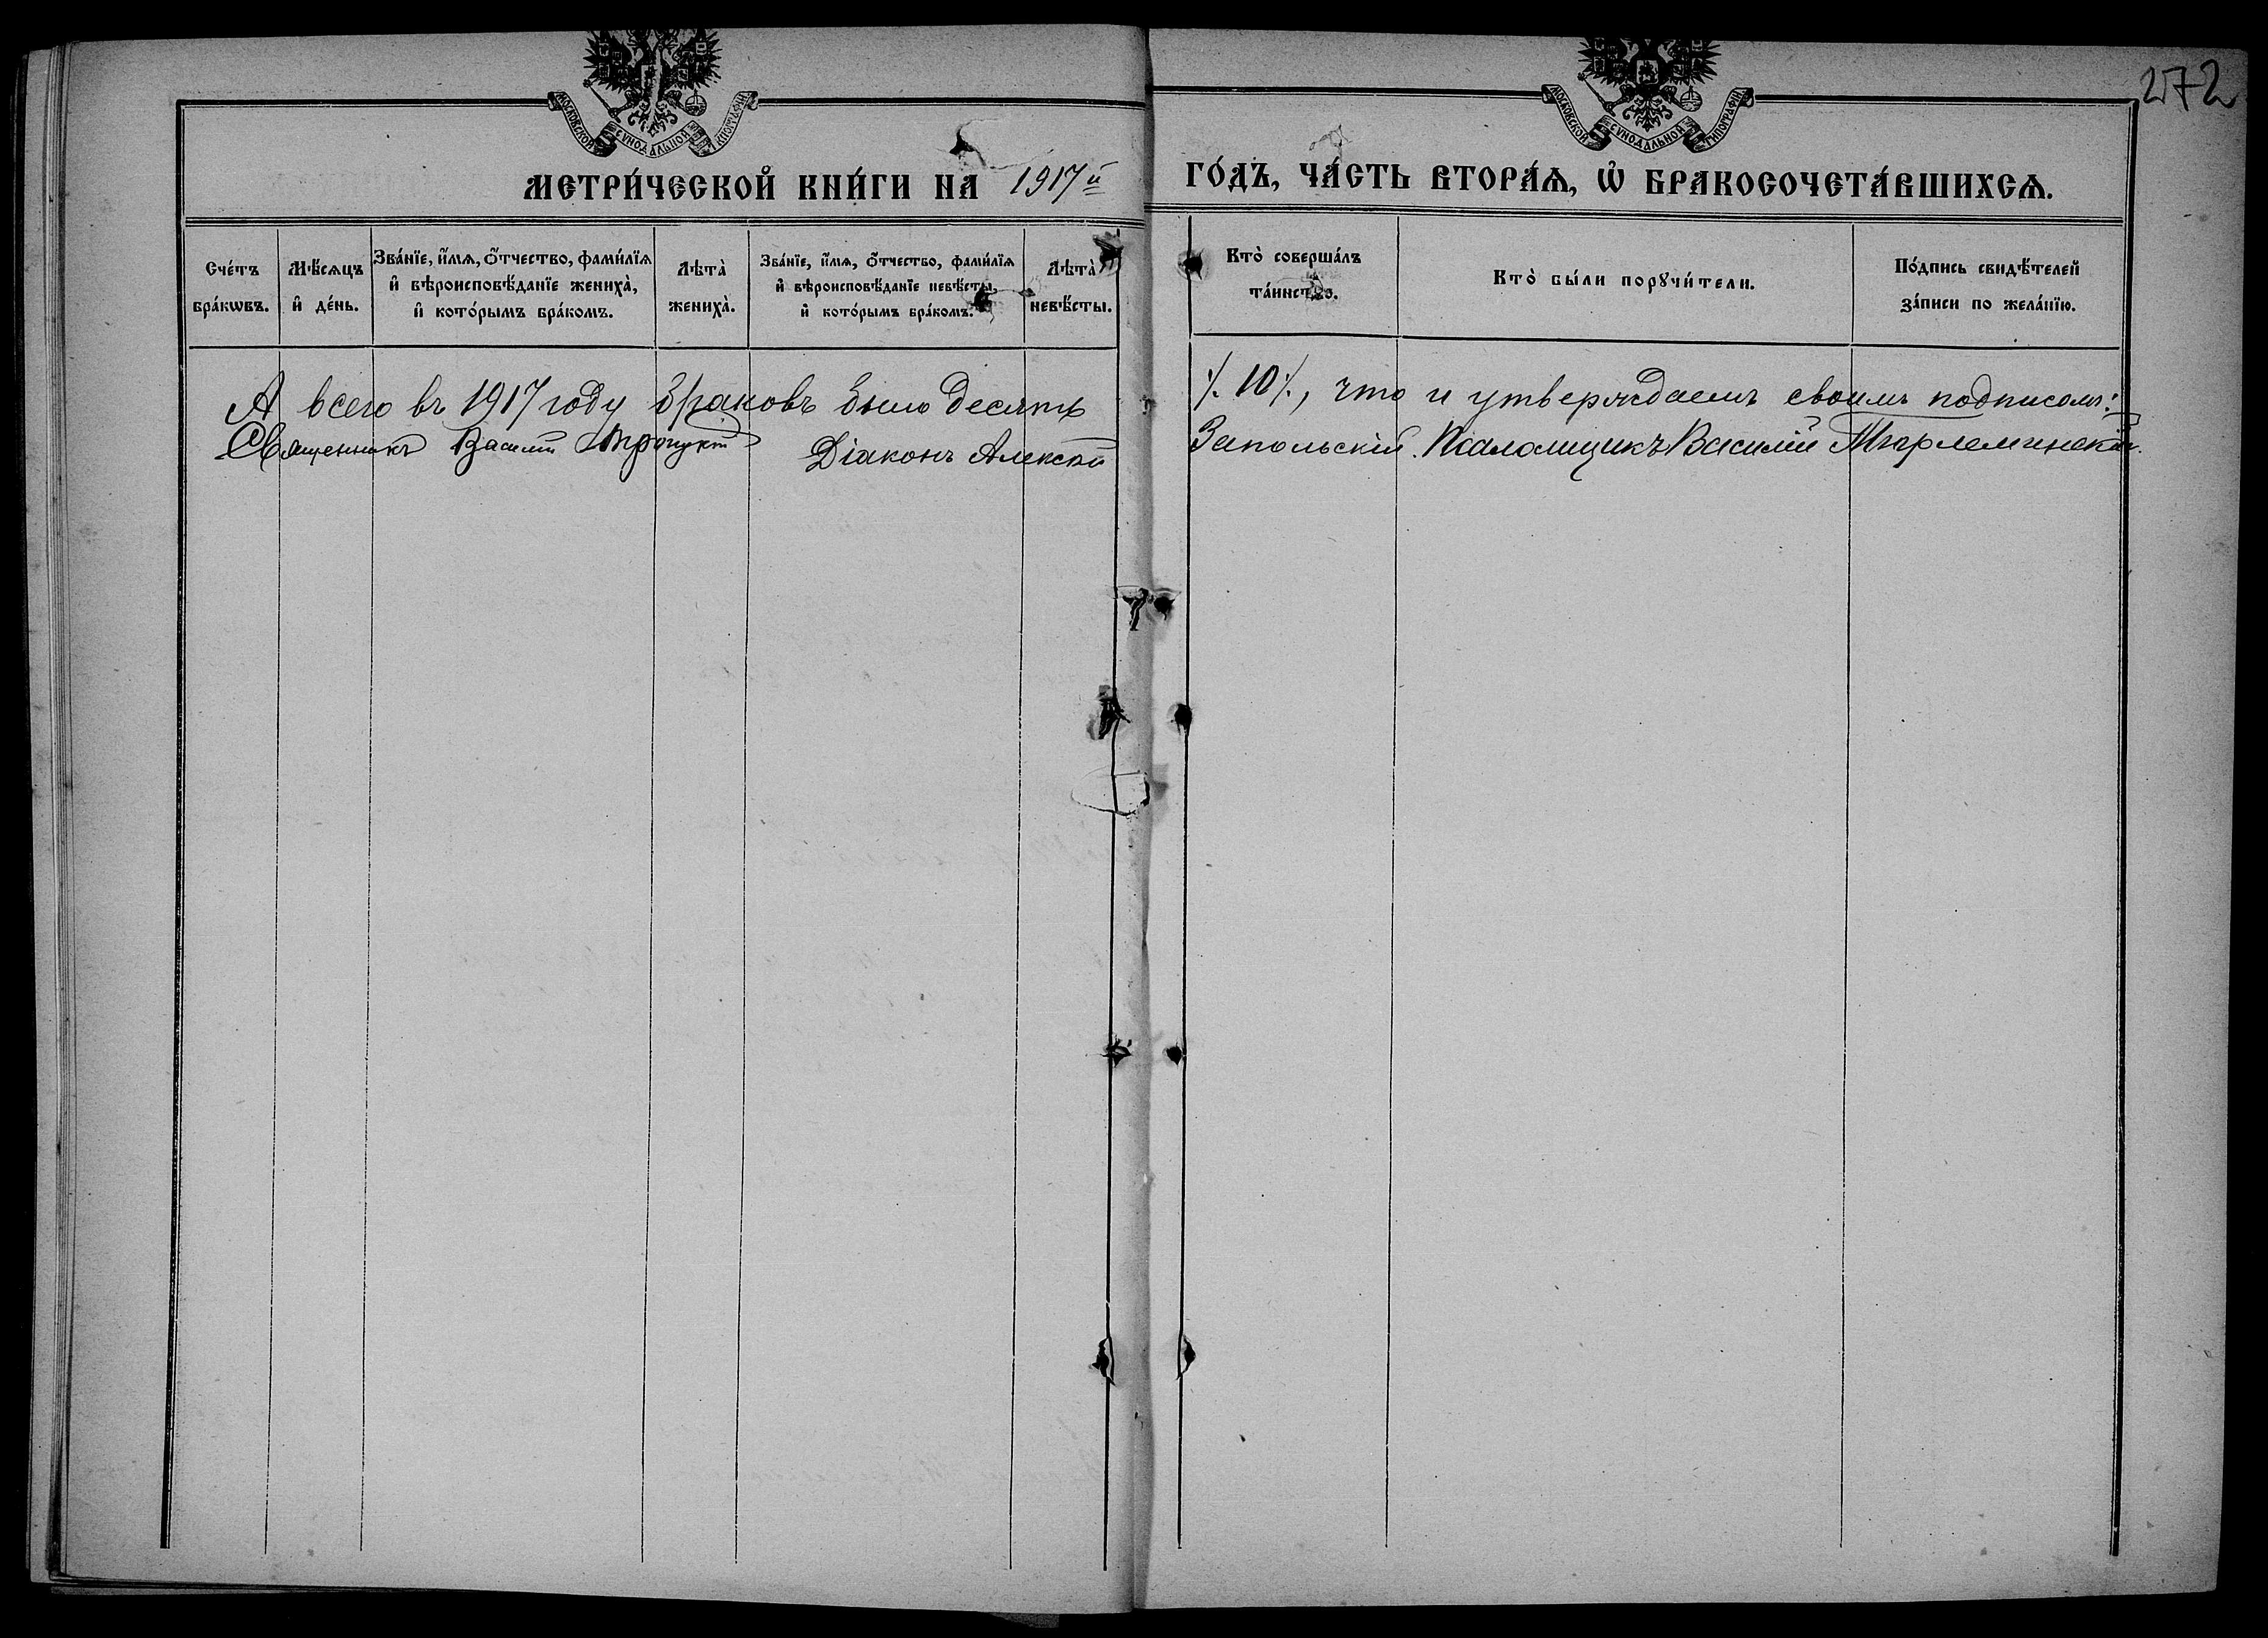 272
МОСКОВСКОЙ СѴНОДАЛЬНОЙ ТИПОГРАФІИ
МОСКОВСКОЙ СѴНОДАЛЬНОЙ ТИПОГРАФІИ
МЕТРИ́ЧЕСКОЙ КНИ́ГИ НА 1917й ГО́ДЪ, ЧА́СТЬ ВТОРА́Ѧ, Ѡ҆ БРАКОСОЧЕТА́ВШИХСѦ.
Сче́тъ
бра́кѡвъ.
Мѣ́сѧцъ
и҆ де́нь.
Зва́нїе, и҆́мѧ, ѻ҆́тчество, фами́лїѧ
и҆ вѣроисповѣ́данїе жениха̀,
и҆ кото́рымъ бра́комъ.
Лѣта̀
жениха̀.
Зва́нїе, и҆́мѧ, ѻ҆́тчество, фами́лїѧ
и҆ вѣроисповѣ́данїе невѣ́сты,
и҆ кото́рымъ бра́комъ.
Лѣта̀
невѣ́сты.
Кто̀ соверша́лъ
та́инство.
Кто̀ бы́ли порꙋчи́тели.
По́дпись свидѣ́телей
за́писи по жела́нїю.
А всего въ 1917 году браковъ было десять ·/. 10 ·/., что и утверждаемъ своимъ подписомъ:
Священникъ Василій Діаконъ Алексій Запольскій. Псаломщикъ Василій